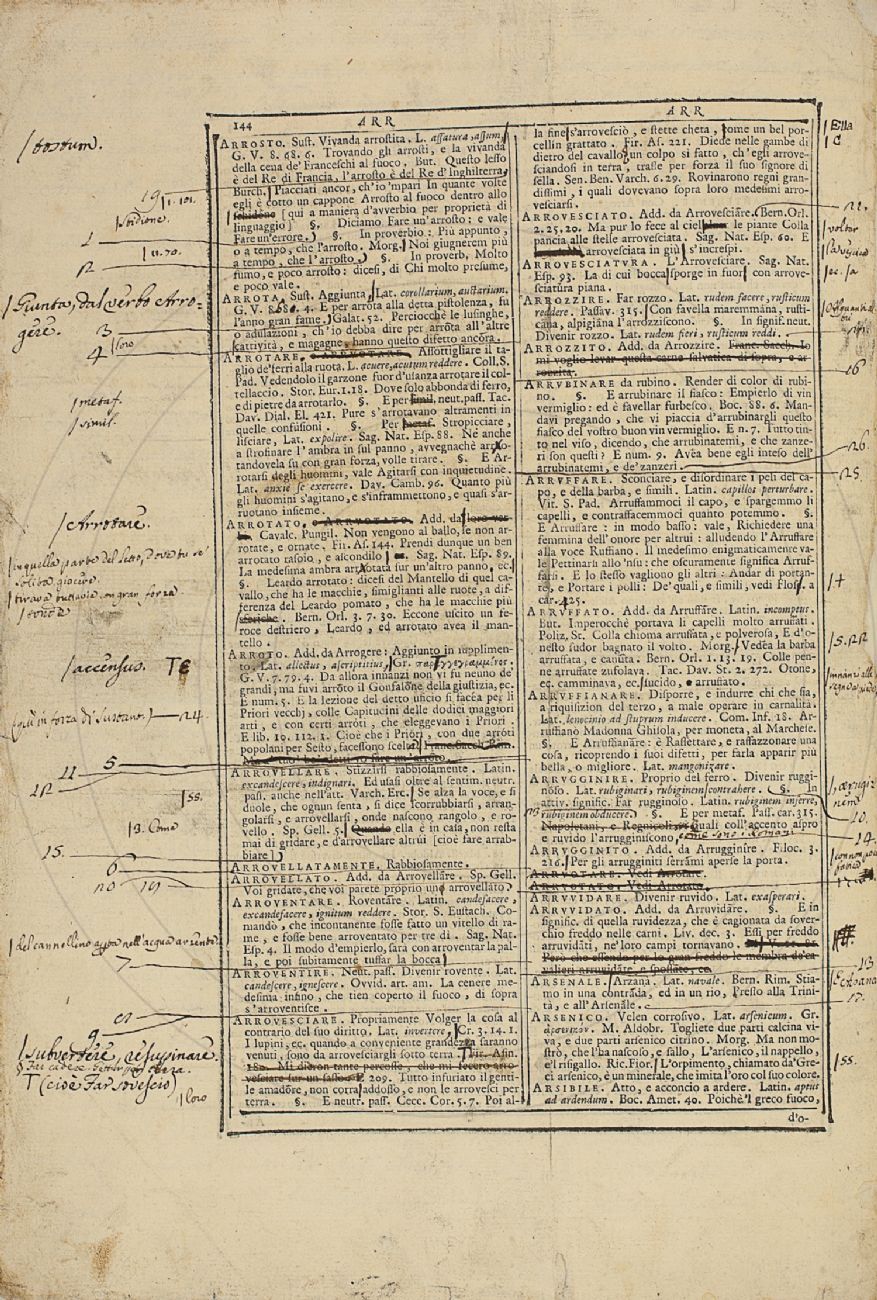 144 ARR
ARROSTO. Sust. Vivanda arrostita. L. assatura, assum.
G. V. 8. 68. 6. Trovando gli arrosti, e la vivanda
della cena de' Franceschi al fuoco. But. Questo lesso
è del Re di Francia, l'arrosto è del Re d'Inghilterra,
Burch. Piacciati ancor, ch'io 'mpari In quante volte
egli è cotto un cappone Arrosto al fuoco dentro allo
schidóne [qui a maniera d'avverbio per proprietà di
linguaggio] §. Diciamo Fare un'arrosto: e vale
Fare un'errore. §. In proverbio: Più appunto,
o a tempo, che l'arrosto. Morg. Noi giugnerem più
a tempo, che l'arrosto. §. In proverb. Molto
fumo, e poco arrosto: dicesi, di Chi molto presume,
e poco vale.
ARROTA. Sust. Aggiunta, Lat. corollarium, auctarium.
G. V. 4. E per arrota alla detta pistolenza, fu
l'anno gran fame, Galat. 52. Perciocchè le lusinghe,
o adulazioni, ch'io debba dire per arrota all'altre
kattività, e magagne, hanno questo difetto ancora.
ARROTARE. Assottigliare il taglio
de' ferri alla ruota. L. acuere, acutum reddere. Coll. S.
Pad. Vedendolo il garzone fuor d'usanza arrotare il coltellaccio.
Stor. Eur. 1. 18. Dove solo abbonda di ferro,
e di pietre da arrotarlo. §. E per simil. neut. pass. Tac.
Dav. Dial. El. 421. Pure s'arrotavano altramenti in
quelle confusioni. §. Per metaf. Stropicciare,
lisciare, Lat. expolire. Sag. Nat. Esp. 88. Né anche
a strofinare l'ambra in sul panno, avvegnachè arrotandovela
su con gran forza, volle tirare. §. E Arrotarsi
degli huomini, vale Agitarsi con inquietudine.
Lat. anxiè se exercere. Dav. Camb. 96. Quanto più
gli huomini s'agitano, e s'inframmettono, e quasi s'arruotano
insieme.
ARROTATO. Add. da
Cavalc. Pungil. Non vengono al ballo, se non arrotate,
e ornate. Fir. As. 144. Prendi dunque un ben
arrotato rasoio, e ascondilo. Sag. Nat. Esp. 89.
La medesima ambra arrotata sur un'altro panno, ec.
§. Leardo arrotato: dicesi del Mantello di quel cavallo,
che ha le macchie, simiglianti alle ruote, a differenza
del Leardo pomato, che ha le macchie più
sferiche. Bern. Orl. 3. 7. 30. Eccone uscito un feroce
destriero, Leardo, ed arrotato avea il mantello.
ARROTO. Add. da Arrogere: Aggiunto in supplimento,
Lat. allectus, ascriptitius,
G. V. 7. 79. 4. Da allora innanzi non vi fu neuno de'
grandi, ma fuvi arròto il Gonfalone della giustizia, ec.
E num. 5. E la lezione del detto uficio si facea per li
Priori vecchj, colle Capitudini delle dodici maggiori
arti, e con certi arròti, che eleggevano i Priori.
E lib. 10. 112. 1. Cioè che i Priori, con due arròti
popolani per Sesto, facessono scelta Franc. Sacch. Rim.
ARROVELLARE. Stizzirsi rabbiosamente. Latin.
excandescere, indignari. Ed usasi oltre al sentim. neutr.
pass. anche nell'att. Varch. Erc. Se alza la voce, e si
duole, che ognun senta, si dice scorrubbiarsi, arrangolarsi,
e arrovellarsi, onde nascono rangolo, e rovello.
Sp. Gell. 5. Quando ella è in casa, non resta
mai di gridare, e d'arrovellare altrui [cioè fare arrabbiare]
ARROVELLATAMENTE. Rabbiosamente.
ARROVELLATO. Add. da Arrovellare. Sp. Gell.
Voi gridate, che voi parete proprio uno arrovellato
ARROVENTARE. Roventare. Latin. candefacere,
excandefacere, ignitum reddere. Stor. S. Eustach. Comandò,
che incontanente fosse fatto un vitello di rame,
e fosse bene arroventato per tre dì. Sag. Nat.
Esp. 4. Il modo d'empierlo, sarà con arroventar la palla,
e poi subitamente tuffar la bocca
ARROVENTIRE. Neut. pass. Divenir rovente. Lat.
candescere, ignescere. Ovvid. art. am. La cenere medesima
infino, che tien coperto il fuoco, di sopra
s'arroventisce.
ARROVESCIARE. Propriamente Volger la cosa al
contrario del suo diritto, Lat. invertere, Cr. 3. 14. 1.
I lupini, ec. quando a conveniente grandezza saranno
venuti, sono da arrovesciargli sotto terra. Fir. Asin.
180. Mi dieron tante percosse, che mi fecero arrovesciare
sur un sasso. E 209. Tutto infuriato il gentile
amadore, non corra addosso, e non le arrovesci per
terra. §. E neutr. pass. Cecc. Cor. 5. 7. Poi al-
ARR
la fine s'arrovesciò, e stette cheta, come un bel porcellin
grattato. Fir. As. 221. Diede nelle gambe di
dietro del cavallo, un colpo sì fatto, ch'egli arrovesciandosi
in terra, trasse per forza il suo signore di
sella. Sen. Ben. Varch. 6. 29. Rovinarono regni grandissimi,
i quali dovevano sopra loro medesimi arrovesciarsi.
ARROVESCIATO. Add. da Arrovesciare. Bern. Orl.
2. 25. 20. Ma pur lo fece al ciel le piante Colla
pancia alle stelle arrovesciata. Sag. Nat. Esp. 60. E
arrovesciata in giù s'increspi.
ARROVESCIATURA. L'Arrovesciare. Sag. Nat.
Esp. 93. La di cui bocca sporge in fuori con arrovesciatura
piana.
ARROZZIRE. Far rozzo. Lat. rudem facere, rusticum
reddere. Passav. 315. Con favella maremmána, rusticana,
alpigiána l'arrozziscono. §. In signif. neut.
Divenir rozzo. Lat. rudem fieri, rusticum reddi.
ARROZZITO. Add. da Arrozzire. Franc. Sacch. Io
mi voglio levar questa carne salvatica di sopra, e arrozzita.
ARRUBINARE da rubino. Render di color di rubino.
§. E arrubinare il fiasco: Empierlo di vin
vermiglio: ed è favellar furbesco. Boc. 88. 6. Mandavi
pregando, che vi piaccia d'arrubinargli questo
fiasco del vostro buon vin vermiglio. E n. 7. Tutto tinto
nel viso, dicendo, che arrubinatemi, e che zanzeri
son questi? E num. 9. Avea bene egli inteso dell'
arrubinatemi, e de' zanzeri.
ARRUFFARE. Sconciare, e disordinare i peli del capo,
e della barba, e simili. Latin. capillos perturbare.
Vit. S. Pad. Arruffammoci il capo, e spargemmo li
capelli, e contraffacemmoci quanto potemmo. §.
E Arruffare: in modo basso: vale, Richiedere una
femmina dell'onore per altrui: alludendo l'Arruffare
alla voce Ruffiano. Il medesimo enigmaticamente vale
Pettinarli all'nsu: che oscuramente significa Arruffarsi.
E lo stesso vagliono gli altri: Andar di portante,
e Portare i polli: De' quali, e simili, vedi Flos. a
car. 425.
ARRUFFATO. Add. da Arruffare. Latin. incomptus.
But. Imperocchè portava li capelli molto arruffati.
Poliz. St. Colla chioma arruffata, e polverosa, E d'onesto
sudor bagnato il volto. Morg. Vedea la barba
arruffata, e canuta. Bern. Orl. 1. 13. 19. Colle penne
arruffate zufolava. Tac. Dav. St. 2. 272. Otone,
ec. camminava, ec. sucido, arruffato.
ARRUFFIANARE. Disporre, e indurre chi che sia,
a riquisizion del terzo, a male operare in carnalità.
Lat. lenocinio ad stuprum inducere. Com. Inf. 18. Arruffianò
Madonna Ghisola, per moneta, al Marchese.
§. E Arruffianare: è Raffettare, e raffazzonare una
cosa, ricoprendo i suoi difetti, per farla apparir più
bella, o migliore. Lat. mangonizare.
ARRUGGINIRE. Proprio del ferro. Divenir rugginoso.
Lat. rubiginari, rubiginem contrahere. §. In
attiv. signific. Far rugginoso. Latin. rubiginem inferre,
rubigine obducere. §. E per metaf. Pass. car. 315.
Napoletani, e Regnicoli, quali coll'accento aspro
e ruvido l'arrugginiscono, come sono i Romani
ARRUGGINITO. Add. da Arrugginire. Filoc. 3.
216. Per gli arrugginiti serrami aperse la porta.
ARRUOTARE. Vedi Arrotare.
ARRUOTATO. Vedi Arrotato.
ARRUVIDARE. Divenir ruvido. Lat. exasperari.
ARRUVIDATO. Add. da Arruvidare. §. E in
signific. di quella ruvidezza, che è cagionata da soverchio
freddo nelle carni. Liv. dec. 3. Essi per freddo
arruvidati, ne' loro campi tornavano.
Però che essendo per lo gran freddo le membra de' cavalieri
arruvidate, e spossate, ec.
ARSENALE. Arzanà. Lat. navale. Bern. Rim. Stiamo
in una contrada, ed in un rio, Presso alla Trinità,
e all'Arsenale.
ARSENICO. Velen corrosivo. Lat. arsenicum. Gr.
M. Aldobr. Togliete due parti calcina viva,
e due parti arsenico citrino. Morg. Ma non mostrò,
che l'ha nascoso, e fallo, L'arsenico, il nappello,
e'l risigallo. Ric. Fior. L'orpimento, chiamato da' Greci
arsenico, è un minerale, che imita l'oro col suo colore.
ARSIBILE. Atto, e acconcio a ardere. Latin. aptus
ad ardendum. Boc. Amet. 40. Poichè'l greco fuoco,
d'o-
tostum.
stidione.
Giunta, dal verbo Arrogere.
loro
metaf.
simil.
Arrotare.
accensus.
(qui in forza di Sustanvo)
Come
subvertere, resupinare.
(cioè Far rovescio)
loro
Ella
voltar